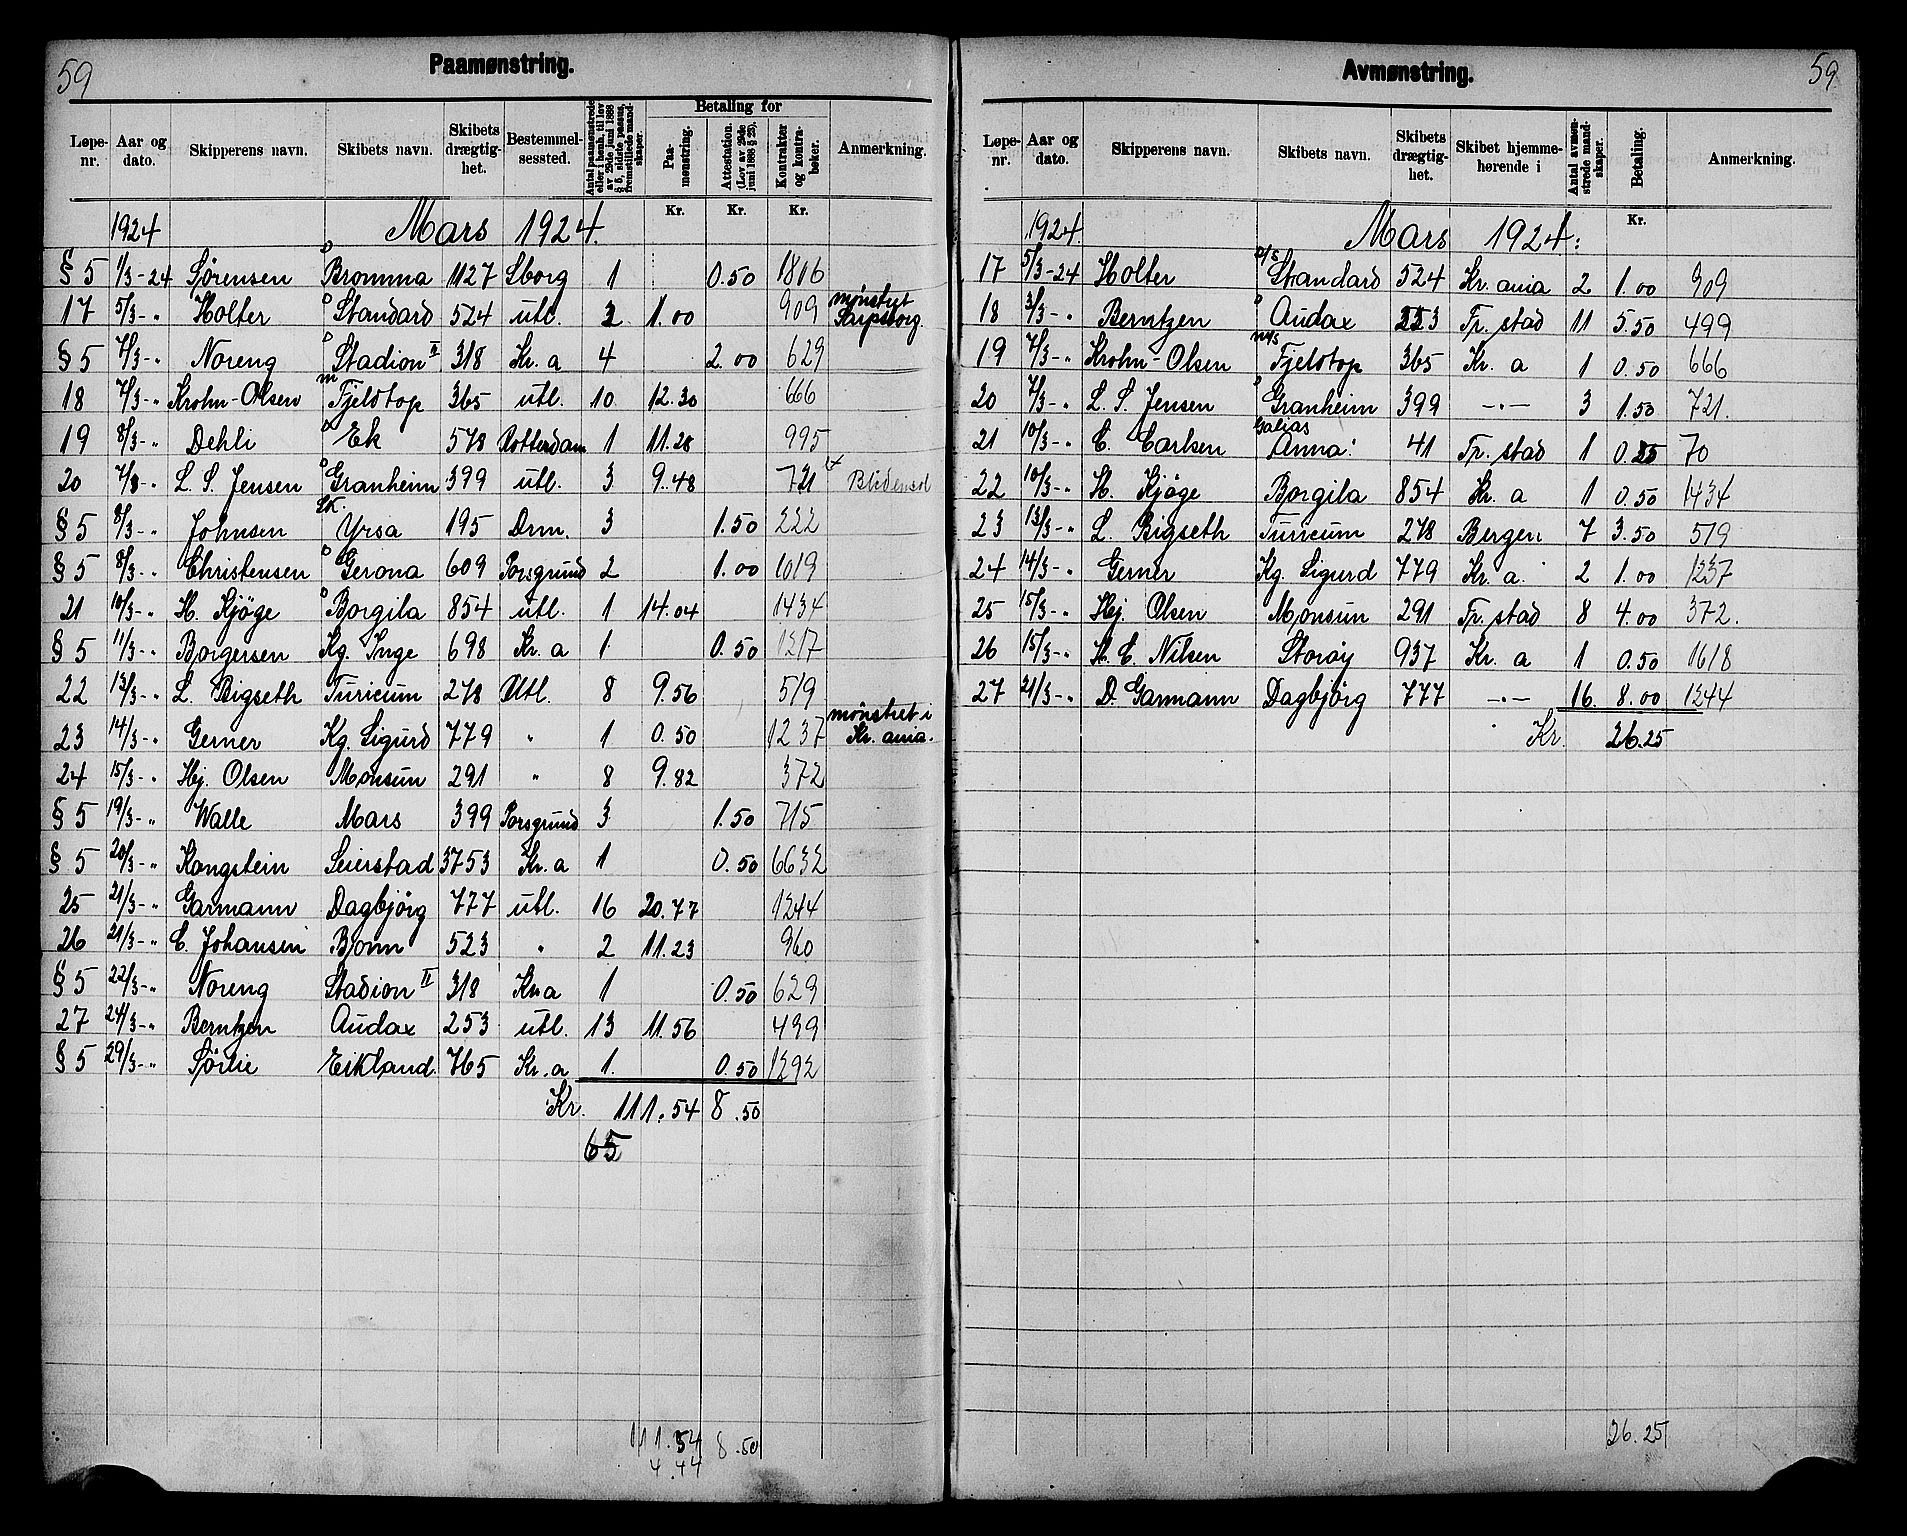 59
Paamønstring.
Løpe-nr. | Aar og dato. | Skipperens navn. | Skibets navn. | Skibets drægtig-het. | Bestemmel-sessted. | Antal paamønstrede eller i henh. til lov av 26de juni 1886 § 5, sidste passus, fremstillede mand-skaper. | Betaling for | Paa-mønstring. | Attestation. (Lov av 26de juni 1886 § 23). | Kontrakter og kontra-bøker. | Anmerkning.
Kr. Kr. Kr.
1924 Mars 1924.
§ 5 1/3-24 Sørensen D Bromma 1127 Sborg 1 0.50 1806
17 5/3-" Holter D Standard 524 utl. 2 1.00 909 mønstret Sarpsborg.
§ 5 7/3-" Noreng D Stadion II 318 Kr. a 4 2.00 629
18 7/3-" Krohn-Olsen m Fjeldtop 365 utl. 10 12.30 666
19 8/3-" Dehli D Ek 578 Rotterdam 1 11.28 995
20 7/3-" L. S. Jensen D Granheim 399 utl. 3 9.48 721
§ 5 8/3-" Johnsen Sk. Yrsa 195 Drm. 3 1.50 222
§ 5 8/3-" Christensen D Gerona 609 Porsgrund 2 1.00 1019
21 10/3-" H. Kjöge D Borgila 854 utl. 1 14.04 1434
§ 5 11/3-" Borgersen Kg. Inge 698 Kr. a 1 0.50 1217
22 13/3-" L. Bigseth Turicum 278 Utl. 8 9.56 519
23 14/3-" Gerner Kg. Sigurd 779 " 1 0.50 1237 mønstret i Kr. ania.
24 15/3-" Hj. Olsen Monsun 291 " 8 9.82 372
§ 5 19/3-" Walle Mars 399 Porsgrund 3 1.50 715
§ 5 20/3-" Kongstein Seierstad 3753 Kr. a 1 0.50 6632
25 21/3-" Garmann Dagbjörg 777 utl. 16 20.77 1244
26 21/3-" C. Johansen Bjonn 523 " 2 11.23 960
§ 5 22/3-" Noreng Stadion II 318 Kr. a 1 0.50 629
27 24/3-" Berntzen Audax 253 utl. 13 11.56 499
§ 5 29/3-" Sörlie Eikland 765 Kr. a 1. 0.50 1292
Kr. 111.54 8.50
65
111.54 8.50
4.44
59
Avmønstring.
Løpe-nr. | Aar og dato. | Skipperens navn. | Skibets navn. | Skibets drægtig-het. | Skibet hjemme-hørende i | Antal avmøn-strede mand-skaper. | Betaling. | Anmerkning.
Kr.
1924. Mars 1924.
17 5/3-24 Holter D/S Standard 524 Kr. ania 2 1.00 909
18 3/3-" Berntzen D Audax 253 Fr. stad 11 5.50 499
19 7/3-" Krohn-Olsen m/s Fjeldtop 365 Kr. a 1 0.50 666
20 7/3-" L. S. Jensen D Granheim 399 -"- 3 1.50 721.
21 10/3-" C. Carlsen Galias Anna 41 Fr. stad 1 0.25 70
22 10/3-" H. Kjöge Borgila 854 Kr. a 1 0.50 1434
23 13/3-" L. Bigseth Turicum 278 Bergen 7 3.50 519
24 14/3-" Gerner Kg. Sigurd 779 Kr. a. 2 1.00 1237
25 15/3-" Hj. Olsen Monsun 291 Fr. stad 8 4.00 372.
26 15/3-" H. C. Nilsen Storöy 937 Kr. a 1 0.50 1618
27 21/3-" D. Garmann Dagbjörg 777 -"- 16 8.00 1244
Kr. 26.25
26.25